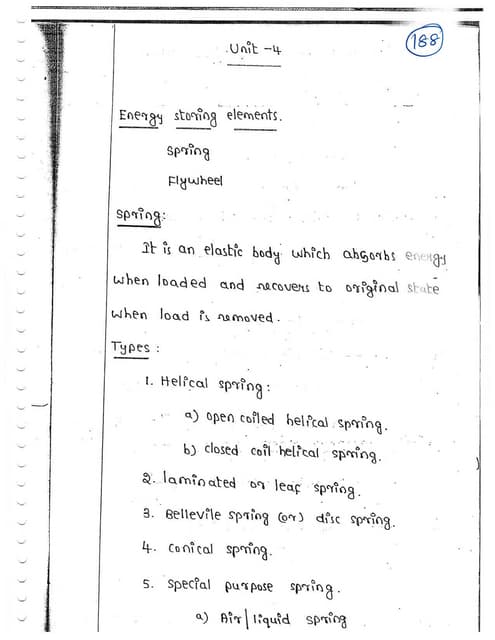 188
Unit - 4
Energy storing elements.
Spring
Flywheel
Spring:
It is an elastic body which absorbs energy
when loaded and recovers to original state
when load is removed.
Types :
1. Helical spring:
a) open coiled helical spring.
b) closed coil helical spring.
2. laminated or leaf spring.
3. Bellevile spring (or) disc spring.
4. conical spring.
5. special purpose spring.
a) Air/liquid spring